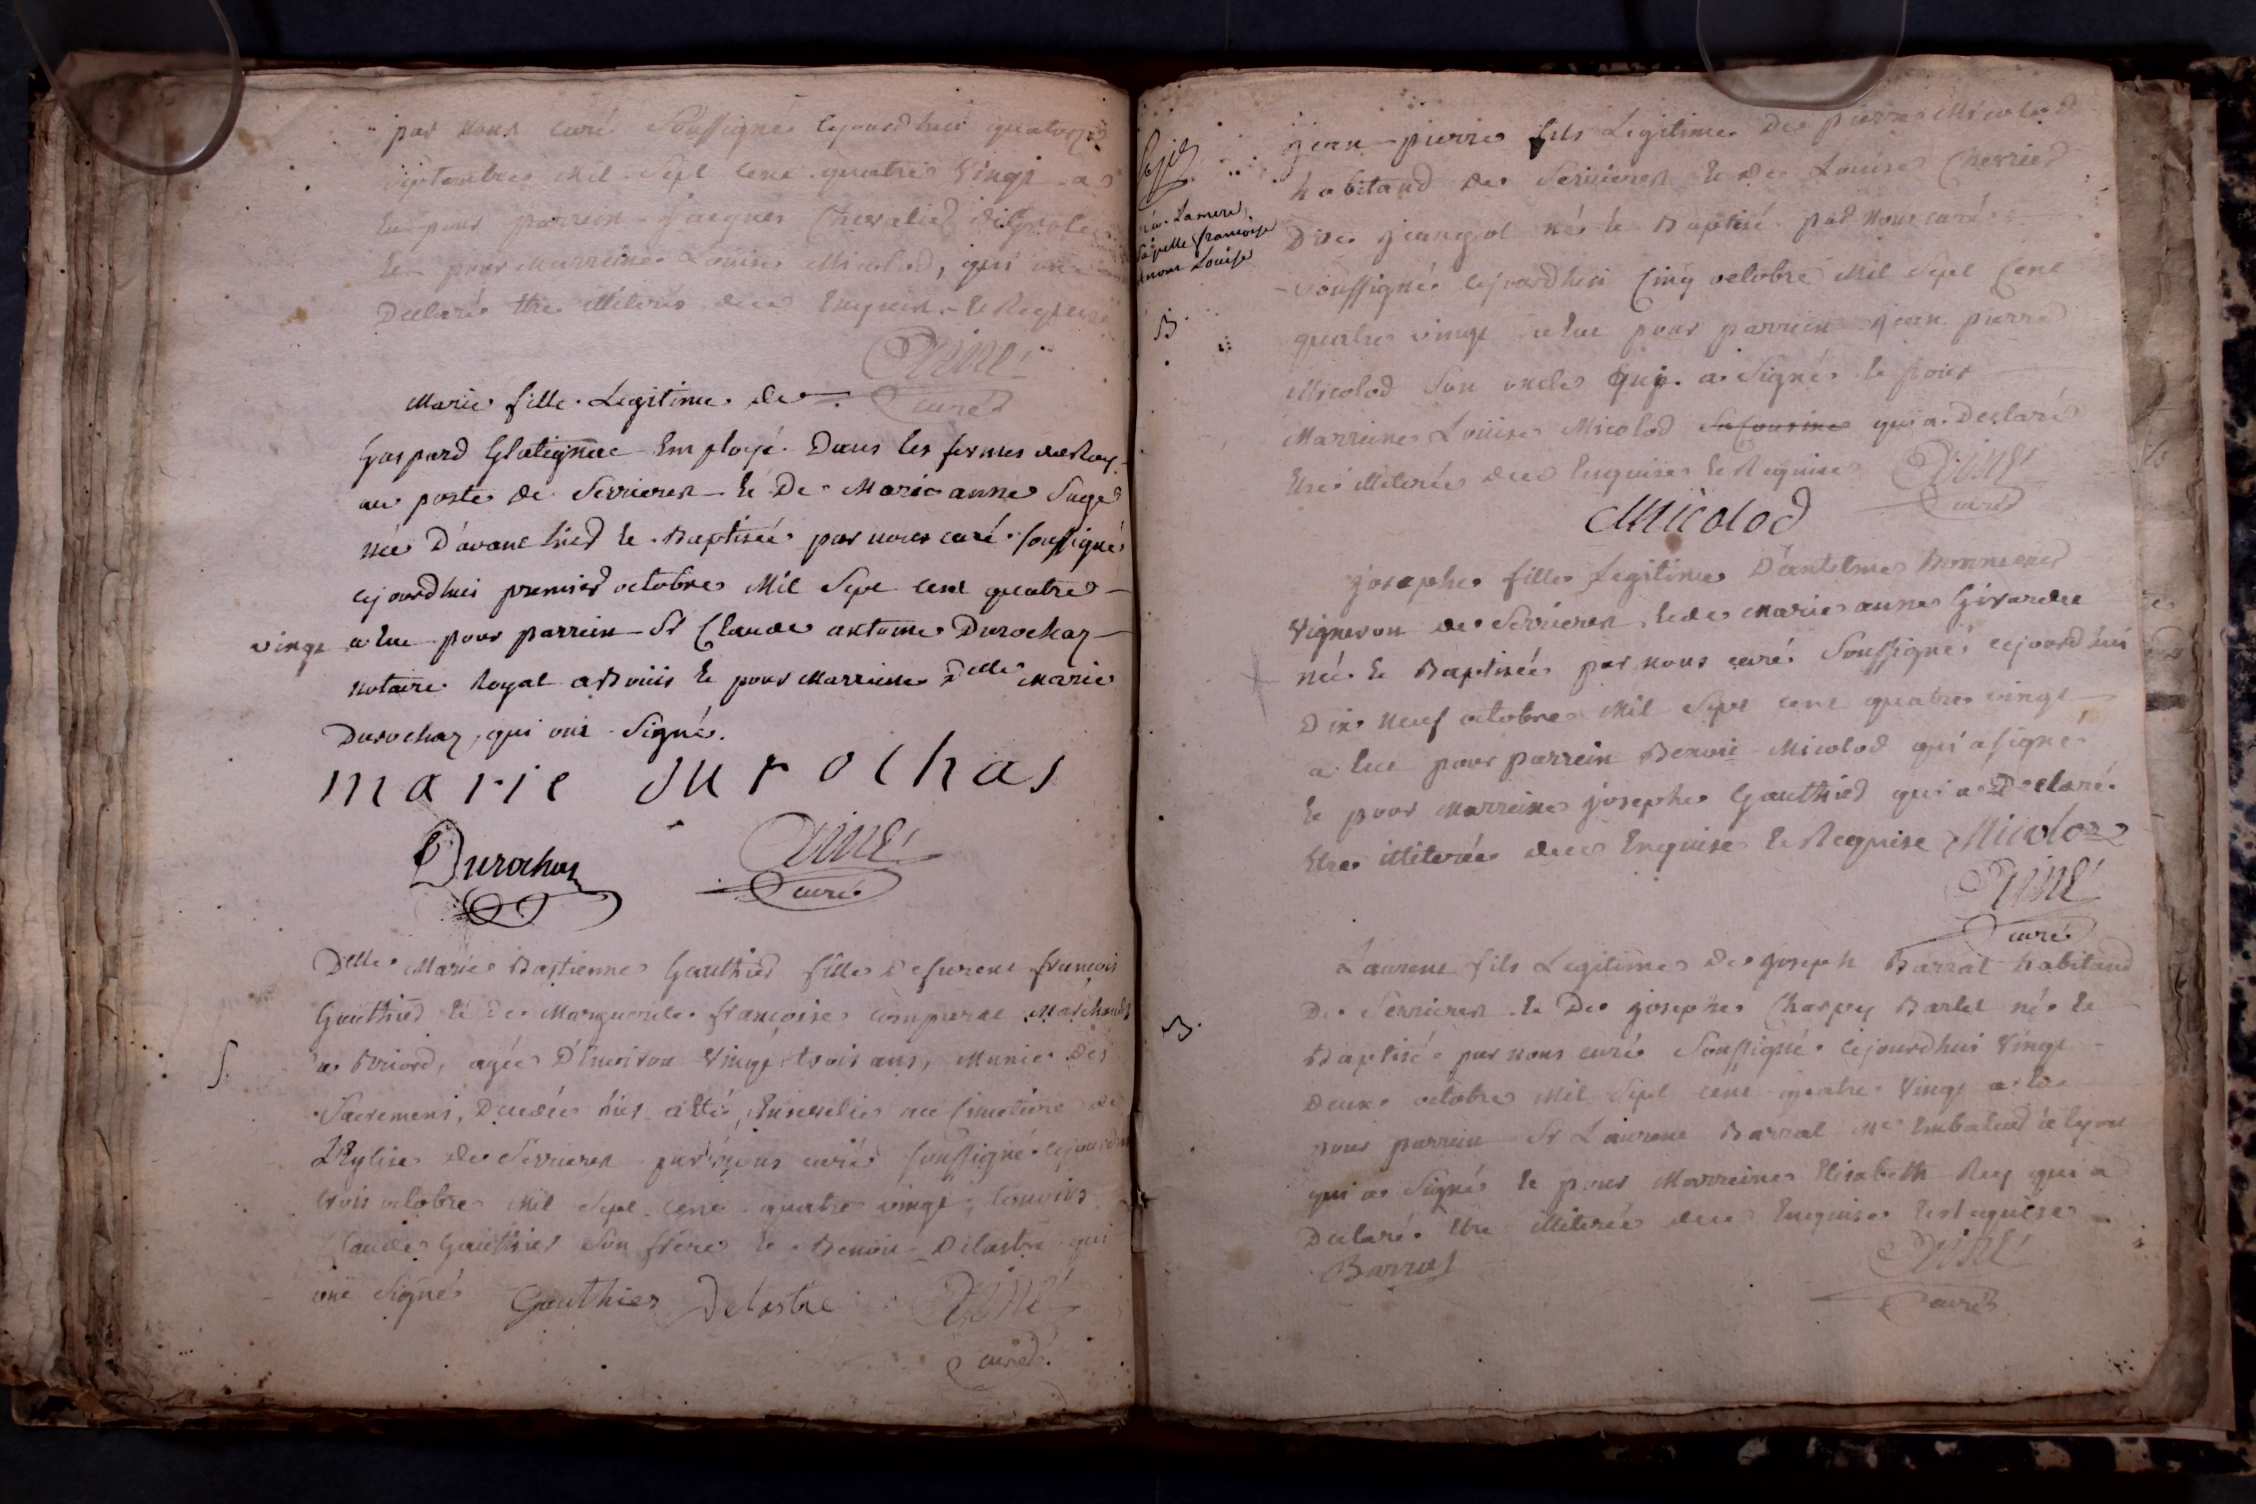 par nous curé soussigné cejourdhui quatorze
septembre mil sept cent quatre vingt a
eu pour parrein jacques Chevalier
et pour marreine Louise Micolod, qui ont
Declaré etre illiterés de ce Enquis et Requis
Curé
Marie fille Legitime de
Gaspard Glatignac Employé Dans les fermes du Roy
au poste de Serrieres et De Marie anne Suge
née D'avant hier et Baptisée par nous curé soussigné
cejourdhui premier octobre Mil Sept cent quatre
vingt a eu pour parrein Sr Claude antoine Durochaz
notaire Royal a et pour Marreine Delle Marie
Durochaz, qui ont Signé.
marie durochas
Durochas
Curé
Delle Marie Bastienne Gauthier fille Defurent françois
Gauthier et de Marguerite françoise comparat Marchands
a Briord, agée D'Environ Vingt trois ans, Munie Des
Sacremens, Decedée hier a été Ensevelie au Cimetiere de
L'Eglise de Serrieres par nous curé soussigné cejourdhui
trois octobre Mil Sept cent quatre vingt, temoins
Claude Gauthier Son frere et Benoit Delastre qui
ont Signé Gauthier Delastre
Curé
née Lamere
s'apelle françoise
et non Louise
B.
jean-pierre fils Legitime De pierre Micolod
habitand de Serrieres et de Louise Cherrier
Dite né et Baptisé par nous curé
soussigné cejourdhui Cinq octobre Mil Sept Cent
quatre vingt a eu pour parrein jean pierre
Micolod Son oncle qui a Signé et pour
Marreine Louise Micolod sa cousine qui a Declaré
Etre illiterée de ce Enquise et Requise
Curé
Micolod
josephe fille Legitime D'antelme
Vigneron de Serrieres et de Marie anne Girardet
née et Baptisée par nous curé Soussigné cejourdhui
Dix neuf octobre Mil Sept cent quatre vingt
a eu pour parrein Benoit Micolod qui a signé
et pour marreine josephe Gauthier qui a Declaré
Etre illiterée de ce Enquise et Requise Micolod
Curé
B.
Laurent fils Legitime De joseph Barral habitand
De Serrieres et De josephe Charpy Barlet né et
Baptisé par nous curé Soussigné cejourdhui Vingt
deux octobre Mil Sept cent quatre Vingt a eu
pour parrein Sr Laurent Barral Me Embaleur a lyon
qui a Signé et pour Marreine Elisabeth Rey qui a
Declaré Etre illiterée de ce Enquise et Requise
Barral
Curé